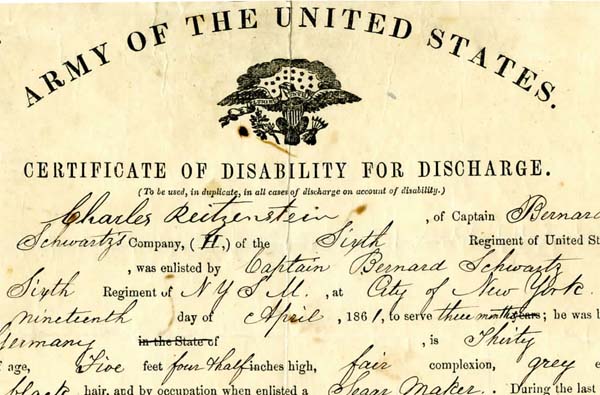 ARMY OF THE UNITED STATES.
CERTIFICATE OF DISABILITY FOR DISCHARGE.
(To be used, in duplicate, in all cases of discharge on account of disability.)
Charles Reitzenstein, of Captain Bernard
Schwartz's Company, (H,) of the Sixth Regiment of United St
, was enlisted by Captain Bernard Schwartz
Sixth Regiment of N Y S M., at City of New York.
nineteenth day of April, 1861, to serve three months; he was b
Germany in the State of , is Thirty
age, Five feet four & half inches high, fair complexion, grey e
black hair, and by occupation when enlisted a Maker. During the last